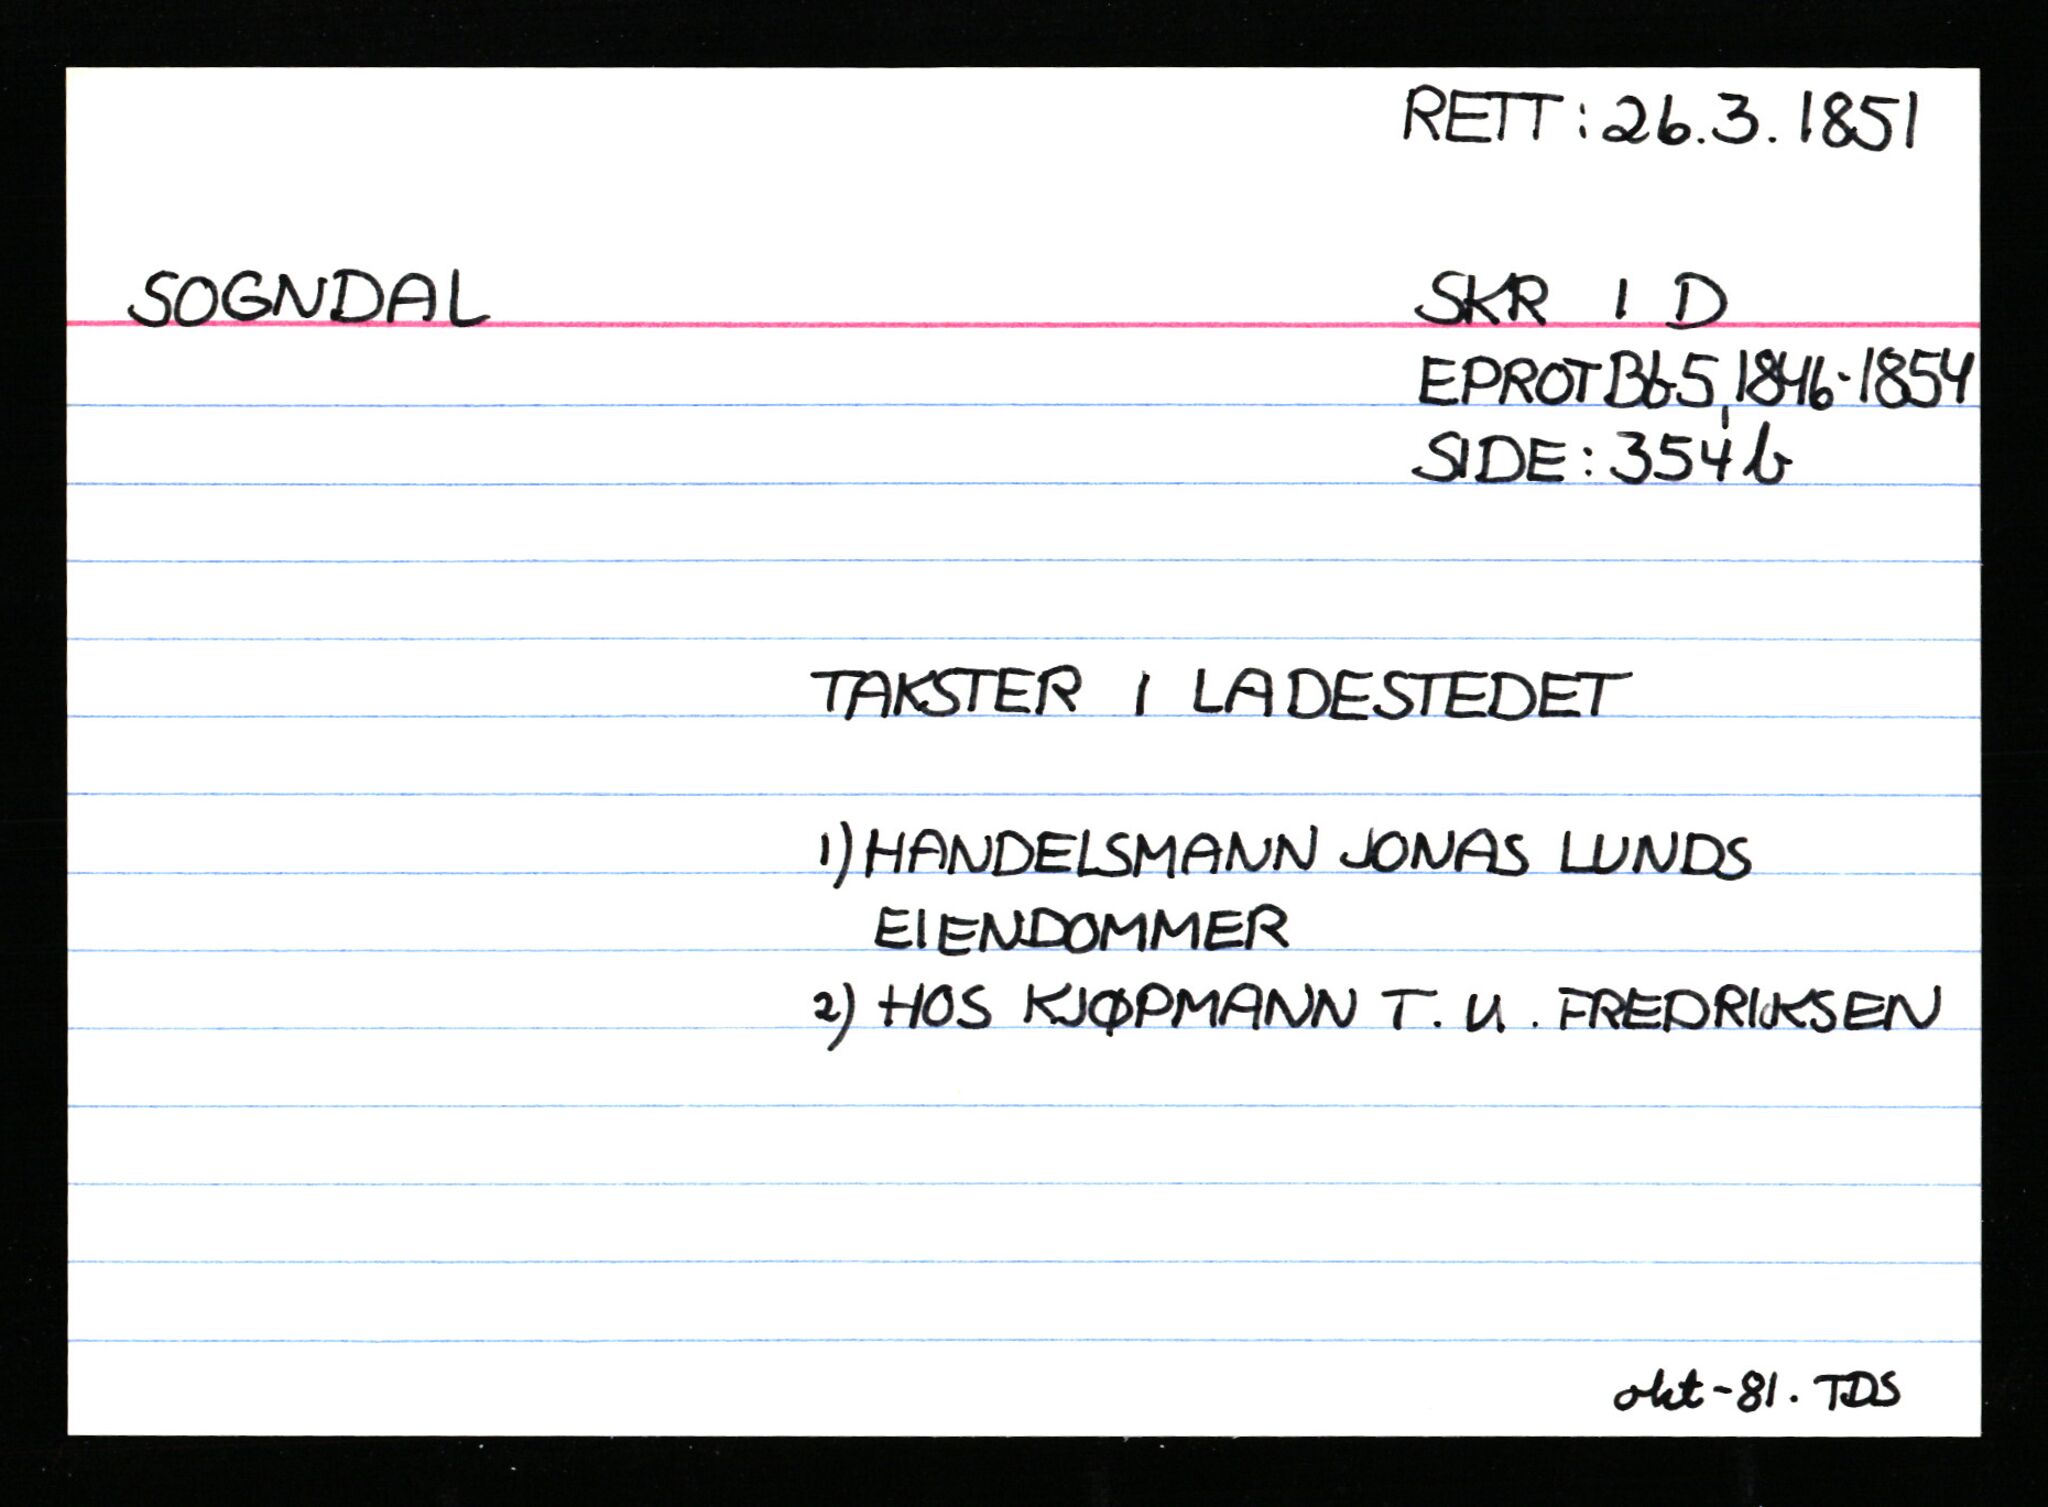 RETT: 26.3.1851
SOGNDAL
SKR I D
EPROT Bb 5, 1846-1854
SIDE: 354b
TAKSTER I LADESTEDET
1) HANDELSMANN JONAS LUNDS
EIENDOMMER
2) HOS KJØPMANN T. U. FREDRIKSEN
okt-81. TDS